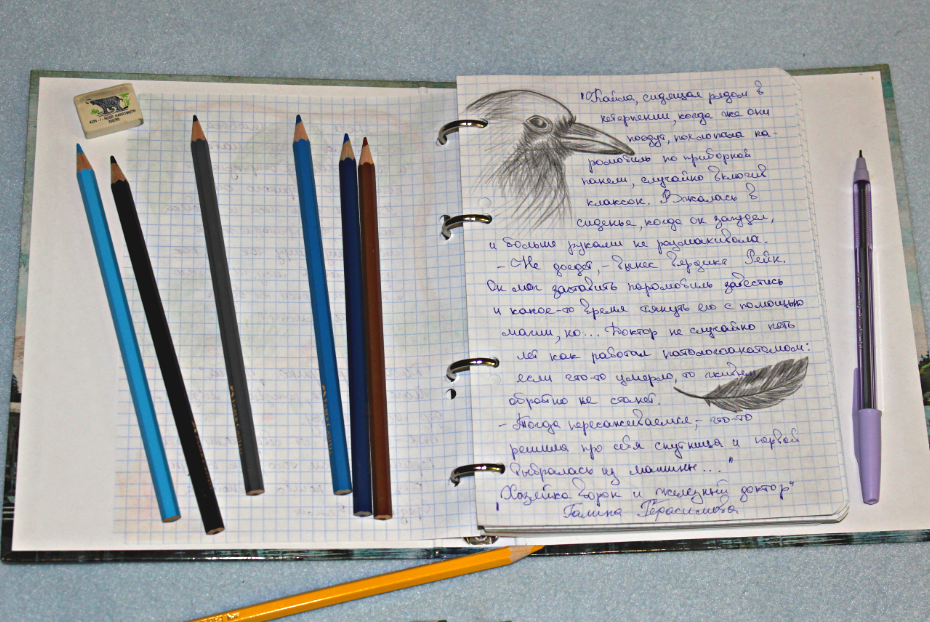 "Кайла, сидящая рядом в
нетерпении, когда же они
поедут, похлопала па-
ромобиль по приборной
панели, случайно включив
клаксон. Вжалась в
сиденье, когда он загудел,
и больше руками не размахивала.
– Не доедет, – вынес вердикт Рейк.
Он мог заставить паромобиль завестись
и какое-то время тянуть его с помощью
магии, но... Доктор не случайно пять
лет как работал патологоанатомом:
если что-то умерло, то живым
обратно не станет.
– Тогда пересаживаемся, – что-то
решила про себя спутница и первой
выбралась из машины..."
"Хозейка ворон и железный доктор"
Галина Герасимова